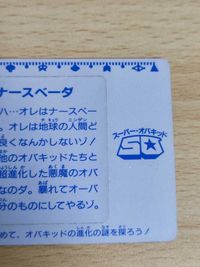 ナースベーダ
ハ…オレはナースベー
。オレは地球の人間ど
良くなんかしないゾ！
他のオバキッドたちと
超進化した悪魔のオバ
なのダ。暴れてオーバ
分のものにしてやるゾ。
スーパー・オバキッド
めて、オバキッドの進化の謎を探ろう！